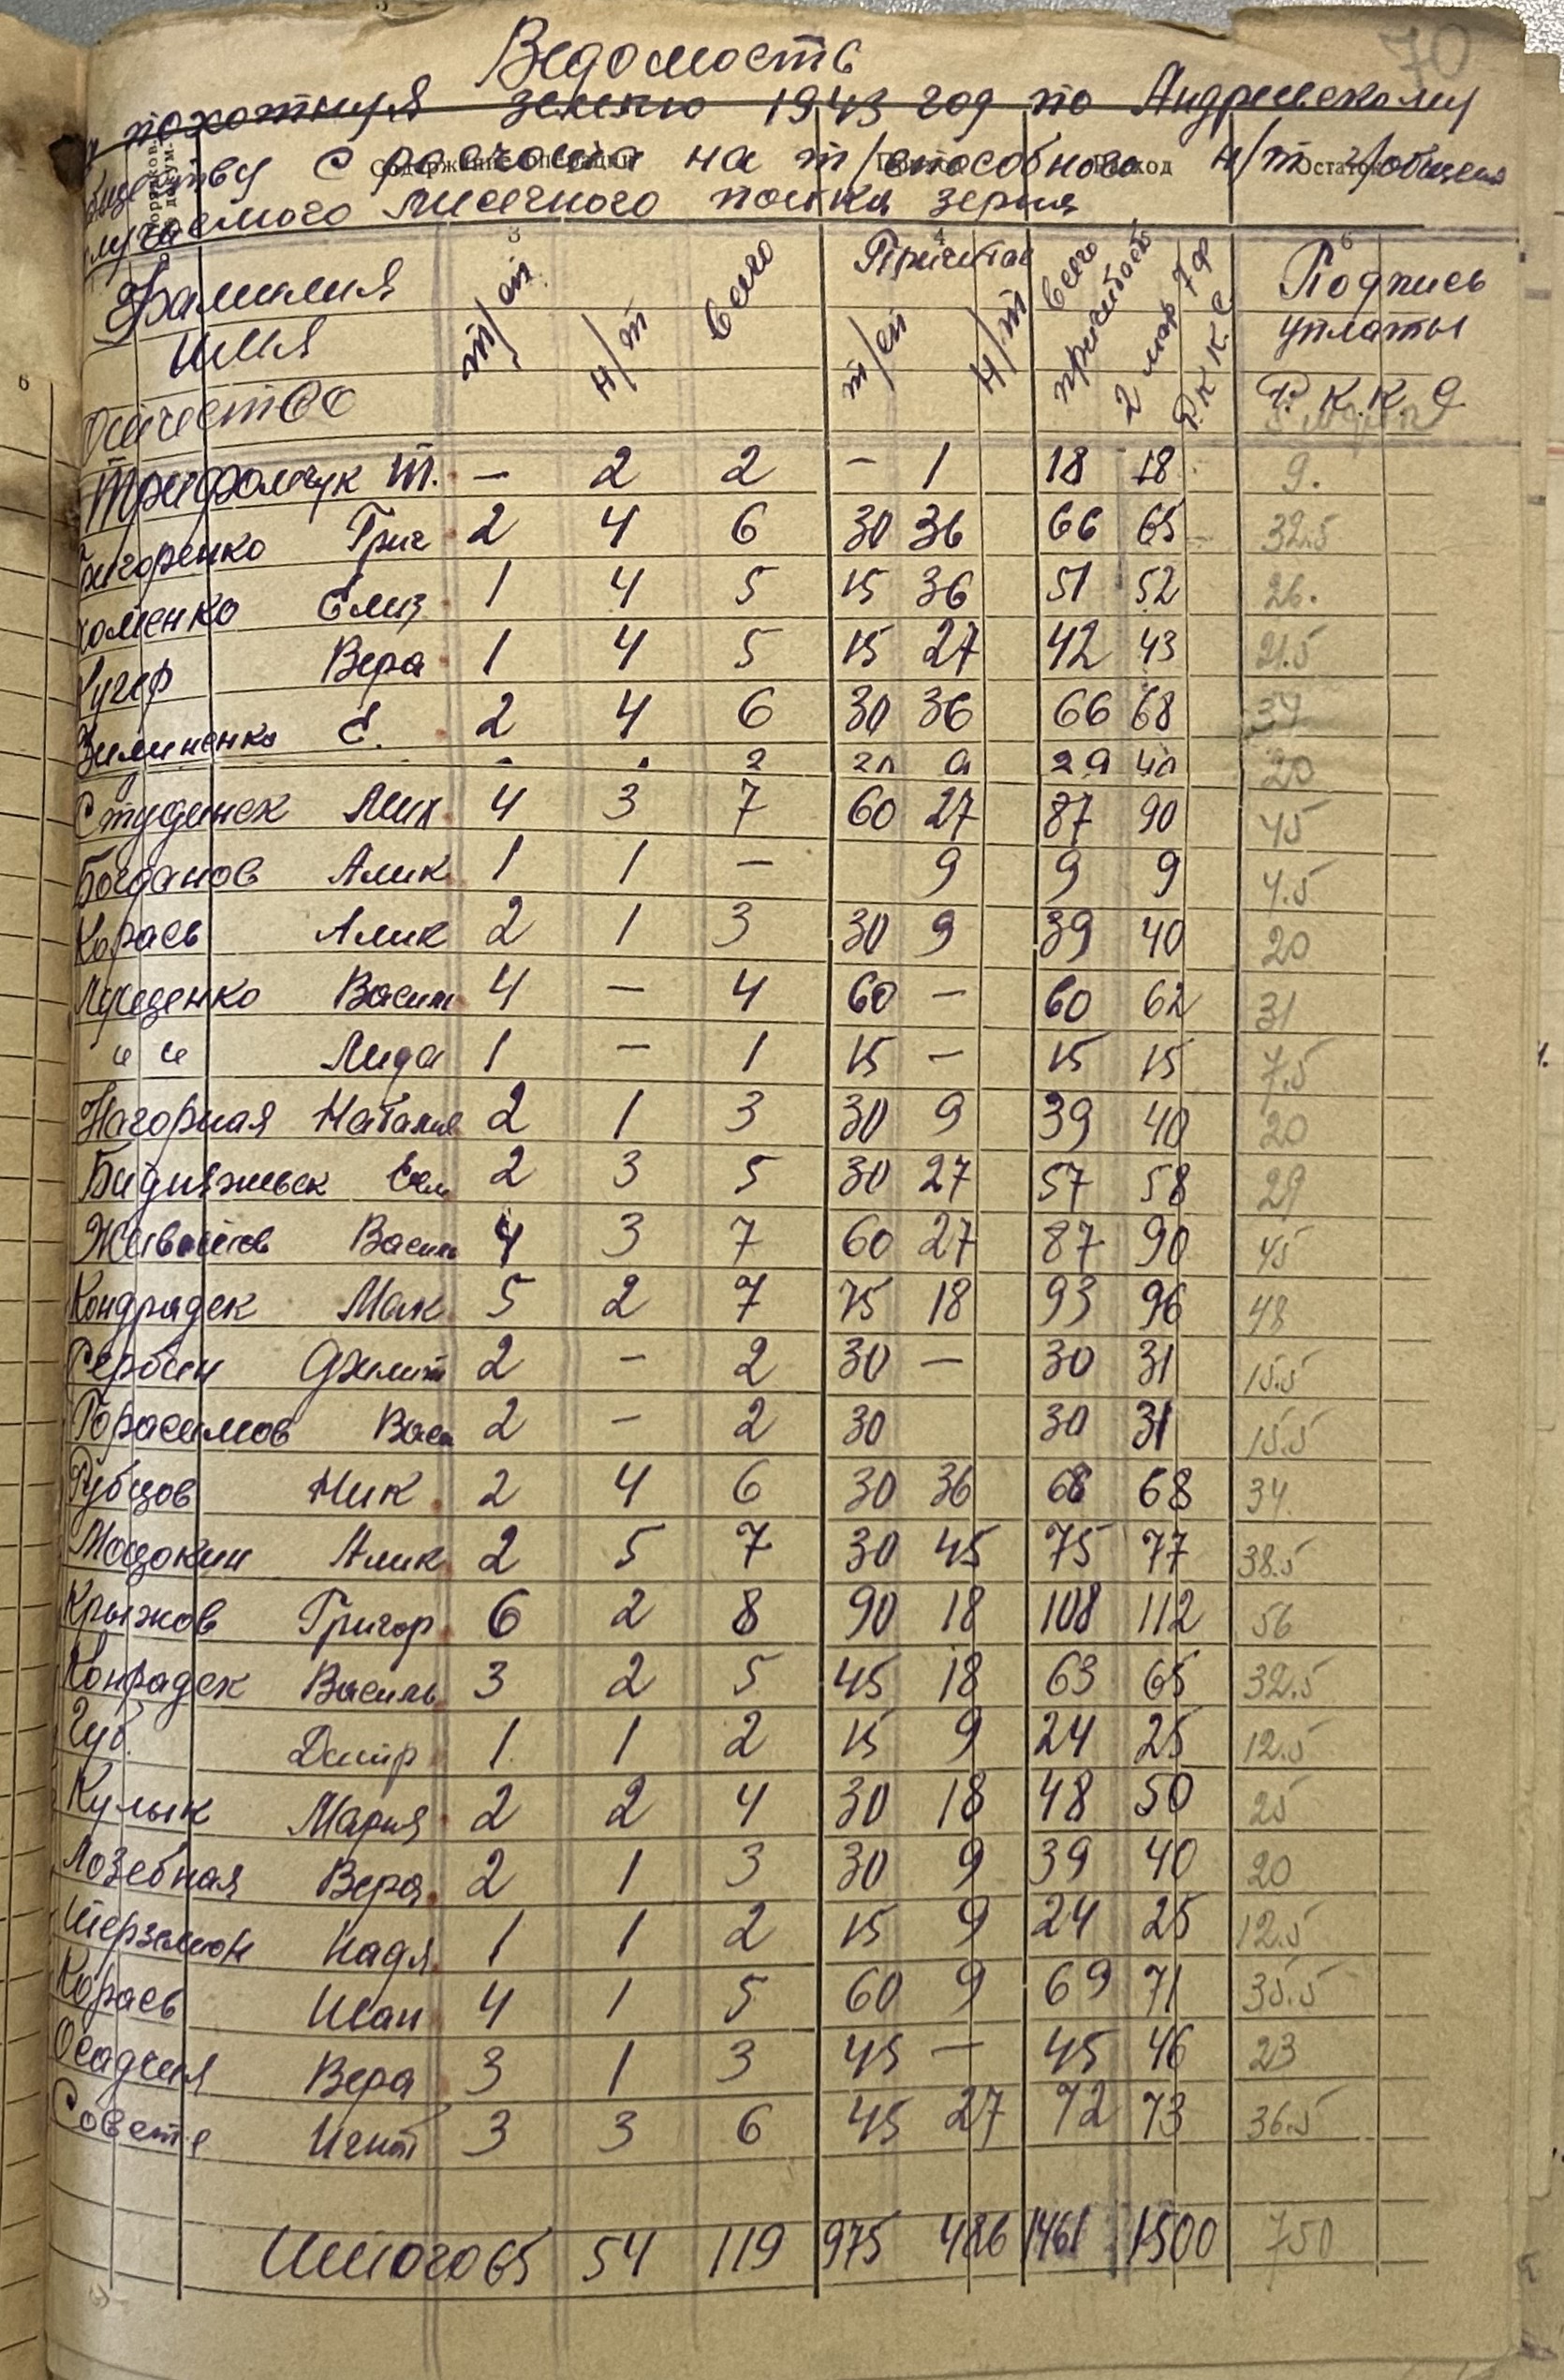 70
Ведомость
землю 1943 год по Андреевскому
с расчёта на т/способного н/т
месячного пойка зерна
Фамилия имя отчество т/сп н/т всего Причитае т/сп н/т всего причитаеть 2 мар 7ф Р.К.К.С. Подпись уплаты Р.К.К.С.
Трифомчук Т. — 2 2 — 1 18 18 9.
Григоренко Григ 2 4 6 30 36 66 65 32.5
Хоменко Елиз 1 4 5 15 36 51 52 26.
Кучер Вера 1 4 5 15 27 42 43 21.5
Зимненко Е. 2 4 6 30 36 66 68 34
2 9 29 40 20
Студинск Мих 4 3 7 60 27 87 90 45
Богданов Алик 1 1 — 9 9 9 4.5
Корась Алик 2 1 3 30 9 39 40 20
Лукщенко Васил 4 — 4 60 — 60 62 31
" " Лида 1 — 1 15 — 15 15 7.5
Нагорная Наталия 2 1 3 30 9 39 40 20
2 3 5 30 27 57 58 29
Васил 4 3 7 60 27 87 90 45
Кондрадек Мак 5 2 7 75 18 93 96 48
Сербин Филип 2 — 2 30 — 30 31 15.5
Горасимов Васи 2 — 2 30 30 31 15.5
Рубцов Ник 2 4 6 30 36 68 68 34
Мацокин Алик 2 5 7 30 45 75 77 38.5
Крыжов Григор 6 2 8 90 18 108 112 56
Конрадек Василь 3 2 5 45 18 63 65 32.5
Чуб. Дмитр 1 1 2 15 9 24 25 12.5
Кулык Мария 2 2 4 30 18 48 50 25
Лозебная Вера 2 1 3 30 9 39 40 20
Надя 1 1 2 15 9 24 25 12.5
Корась Иван 4 1 5 60 9 69 71 35.5
Осадчия Вера 3 1 3 45 — 45 46 23
Игнт 3 3 6 45 27 72 73 36.5
Итого 65 54 119 975 486 1461 1500 750